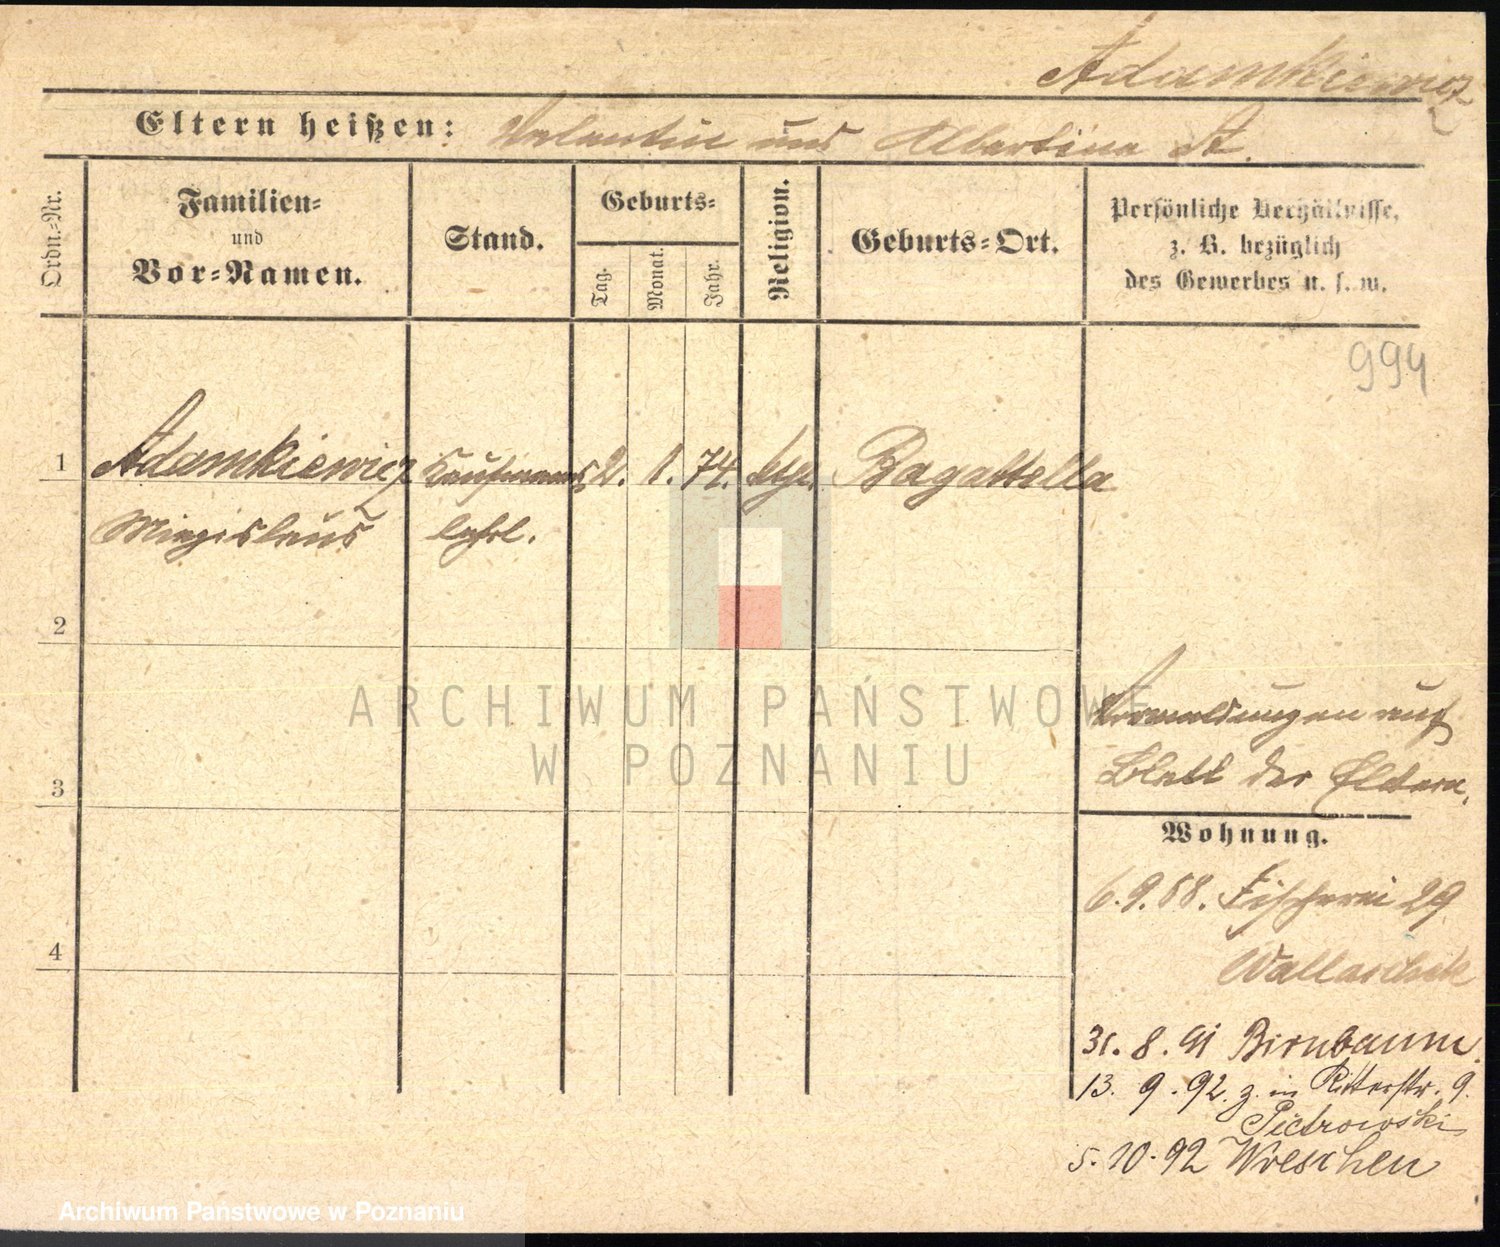 Adamkiewicz
Eltern heißen: Valentin und Albertina A.
Ordn.-Nr.
Familien-
und
Vor-Namen.
Stand.
Geburts-
Tag.
Monat.
Jahr.
Religion.
Geburts-Ort.
Persönliche Verhältnisse,
z. B. bezüglich
des Gewerbes u. s. w.
994
1 Adamkiewicz Kaufmanns 2. 1. 74. kth. Bagattella
Miezislaus lehrl.
2
ARCHIWUM PAŃSTWOWE
W POZNANIU
Anmeldungen auf
Blatt der Eltern.
3
Wohnung.
6.9.88. Fischerei 29
4
31. 8. 91 Birnbaum.
13. 9. 92. z. in Ritterstr. 9.
Pietrowski
5. 10. 92 Wreschen
Archiwum Państwowe w Poznaniu